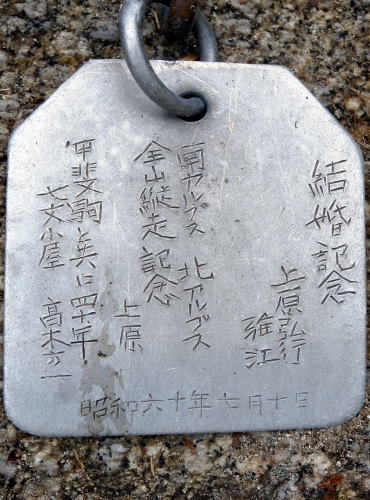 結婚記念
上原弘行
雅江
南アルプス 北アルプス
全山縦走記念
上原
甲斐駒と共に四十年
七丈小屋 高木立一
昭和六十年七月十日